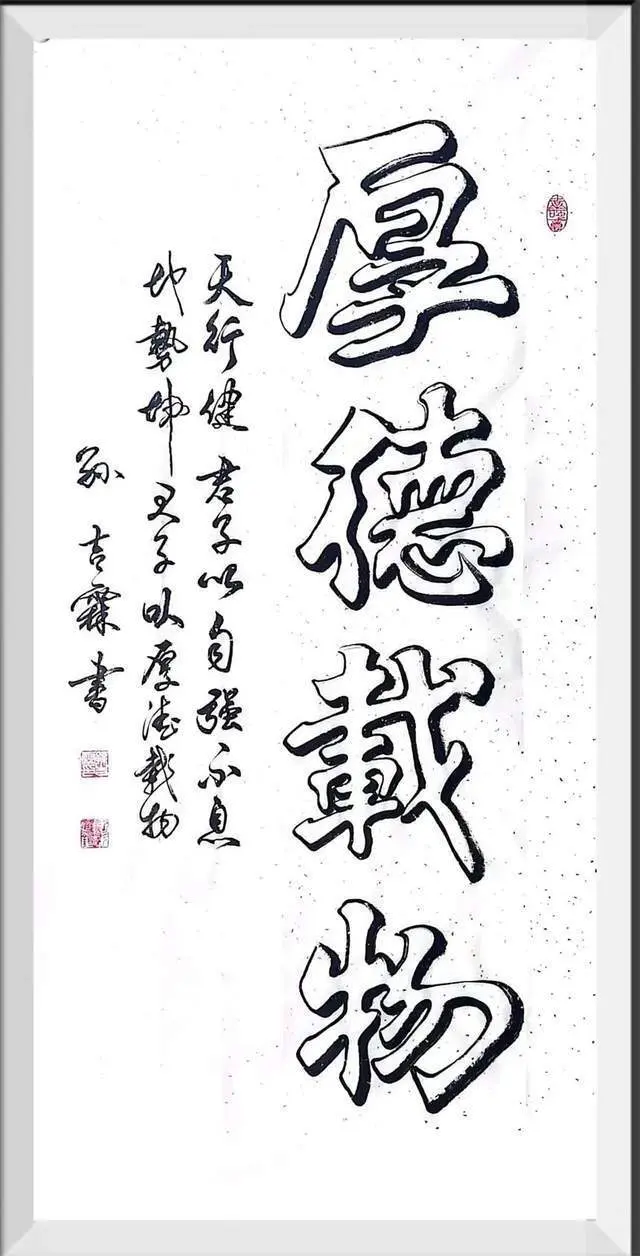 厚德載物
天行健君子以自强不息
地勢坤君子以厚德載物
孙吉霖书